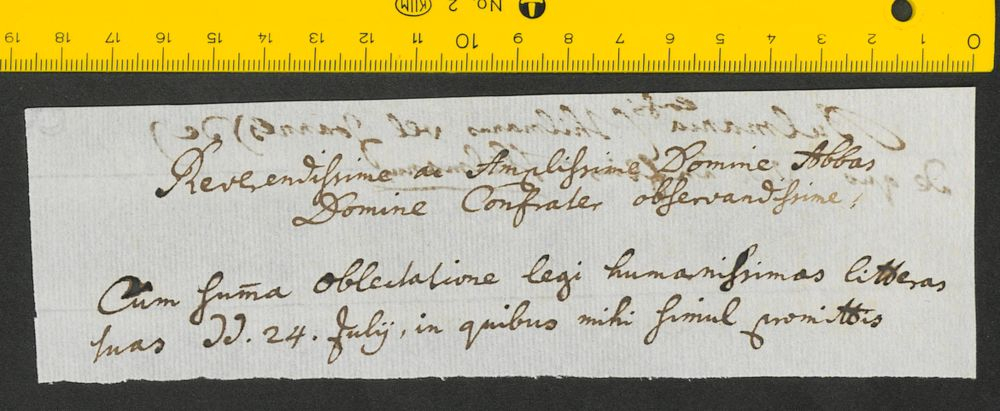 No. 2
0 1 2 3 4 5 6 7 8 9 10 11 12 13 14 15 16 17 18 19
Reverendissime ac Amplissime Domine Abbas
Domine Confrater observandissime,
Cum sum̄a oblectatione legi humanissimas litteras
tuas 24. July, in quibus mihi simul promittis